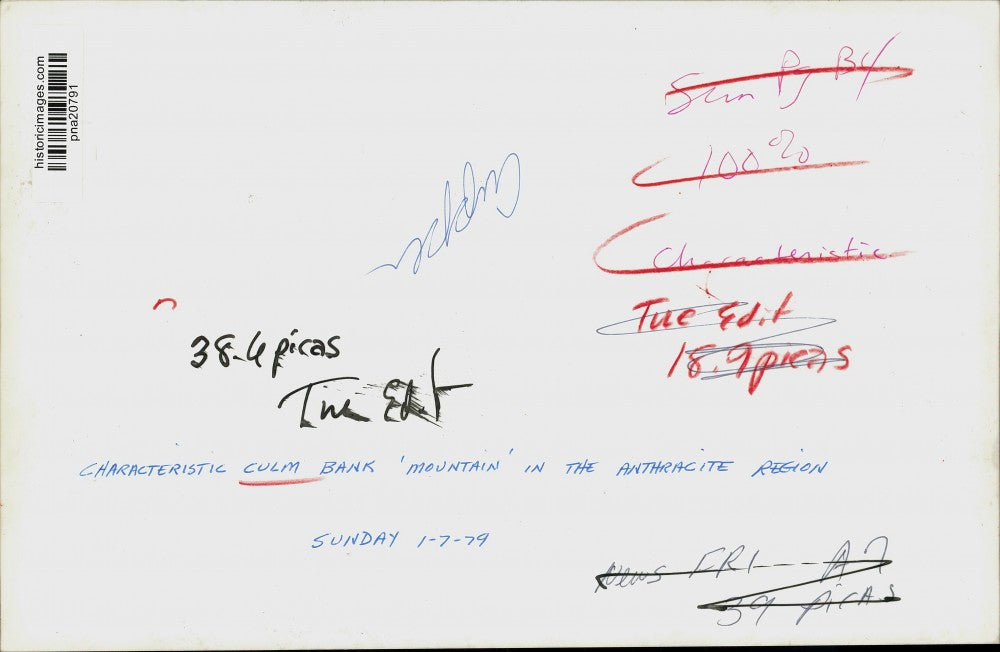 historicimages.com
pna20791
Sun Pg B4
100%
Characteristic
Tue Edit
18.9 picas
38.6 picas
Tue Edit
CHARACTERISTIC CULM BANK 'MOUNTAIN' IN THE ANTHRACITE REGION
SUNDAY 1-7-79
News FRI--- A7
39 picas